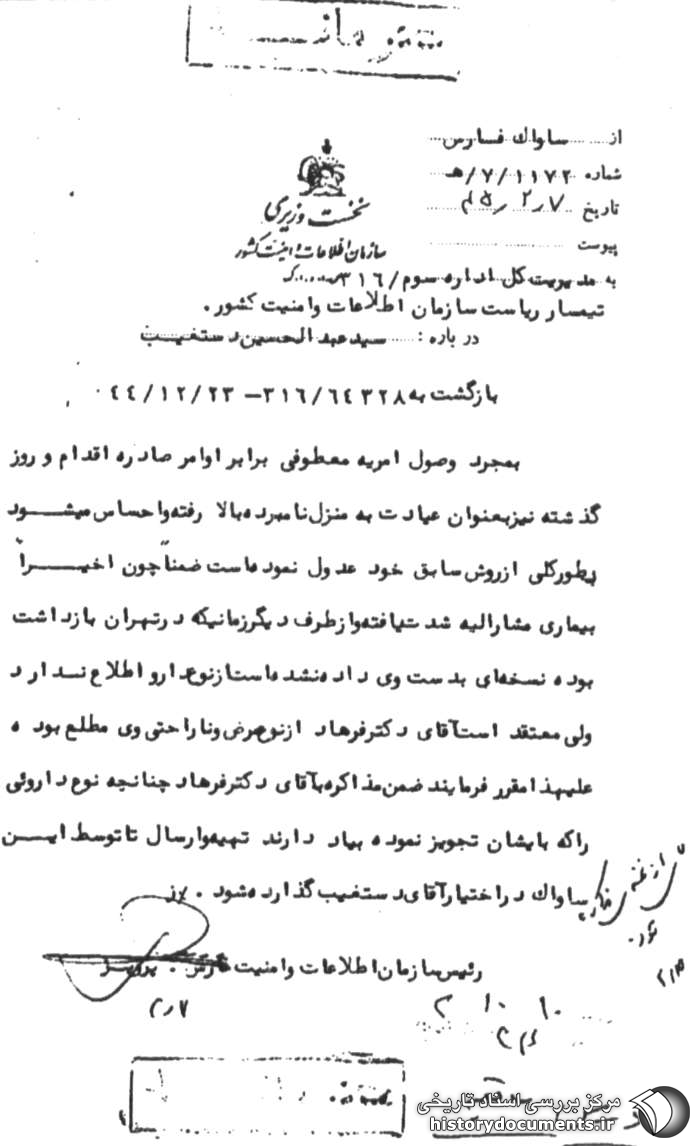 از ساواك فارس
شماره ۱۱۷۲/۷/هـ
تاریخ ۷ر۲ر۴۵
پیوست
نخست وزیری
سازمان اطلاعات و امنیت کشور
به مدیریت کل اداره سوم/۳۱۶
تیمسار ریاست سازمان اطلاعات وامنیت کشور.
درباره: سیدعبدالحسین دستغیب
بازگشت به ۳۱۶/۶۴۳۲۸–۴۴/۱۲/۲۳۰
بمجرد وصول امریه معطوفی برابر اوامر صادره اقدام و روز
گذشته نیزبعنوان عیادت به منزل نامبرده بالا رفته واحساس میشود
بطورکلی ازروش سابق خود عدول نموده است ضمناً چون اخیراً
بیماری مشارالیه شدت یافته وازطرف دیگر زمانیکه درتهران بازداشت
بوده نسخه‌ای بدست وی داده نشده است ازنوع دارو اطلاع ندارد
ولی معتقد است آقای دکترفرهاد ازنوع مرض وناراحتی وی مطلع بوده
علیهذا مقرر فرمایند ضمن مذاکره باآقای دکترفرهاد چنانچه نوع داروئی
راکه بایشان تجویز نموده بیاد دارند تهیه وارسال تاتوسط ایـن
ساواك دراختیارآقای دستغیب گذارده شود.
رئیس سازمان اطلاعات وامنیت فارس.
۷ر۲
مرکز بررسی اسناد تاریخی
historydocuments.ir